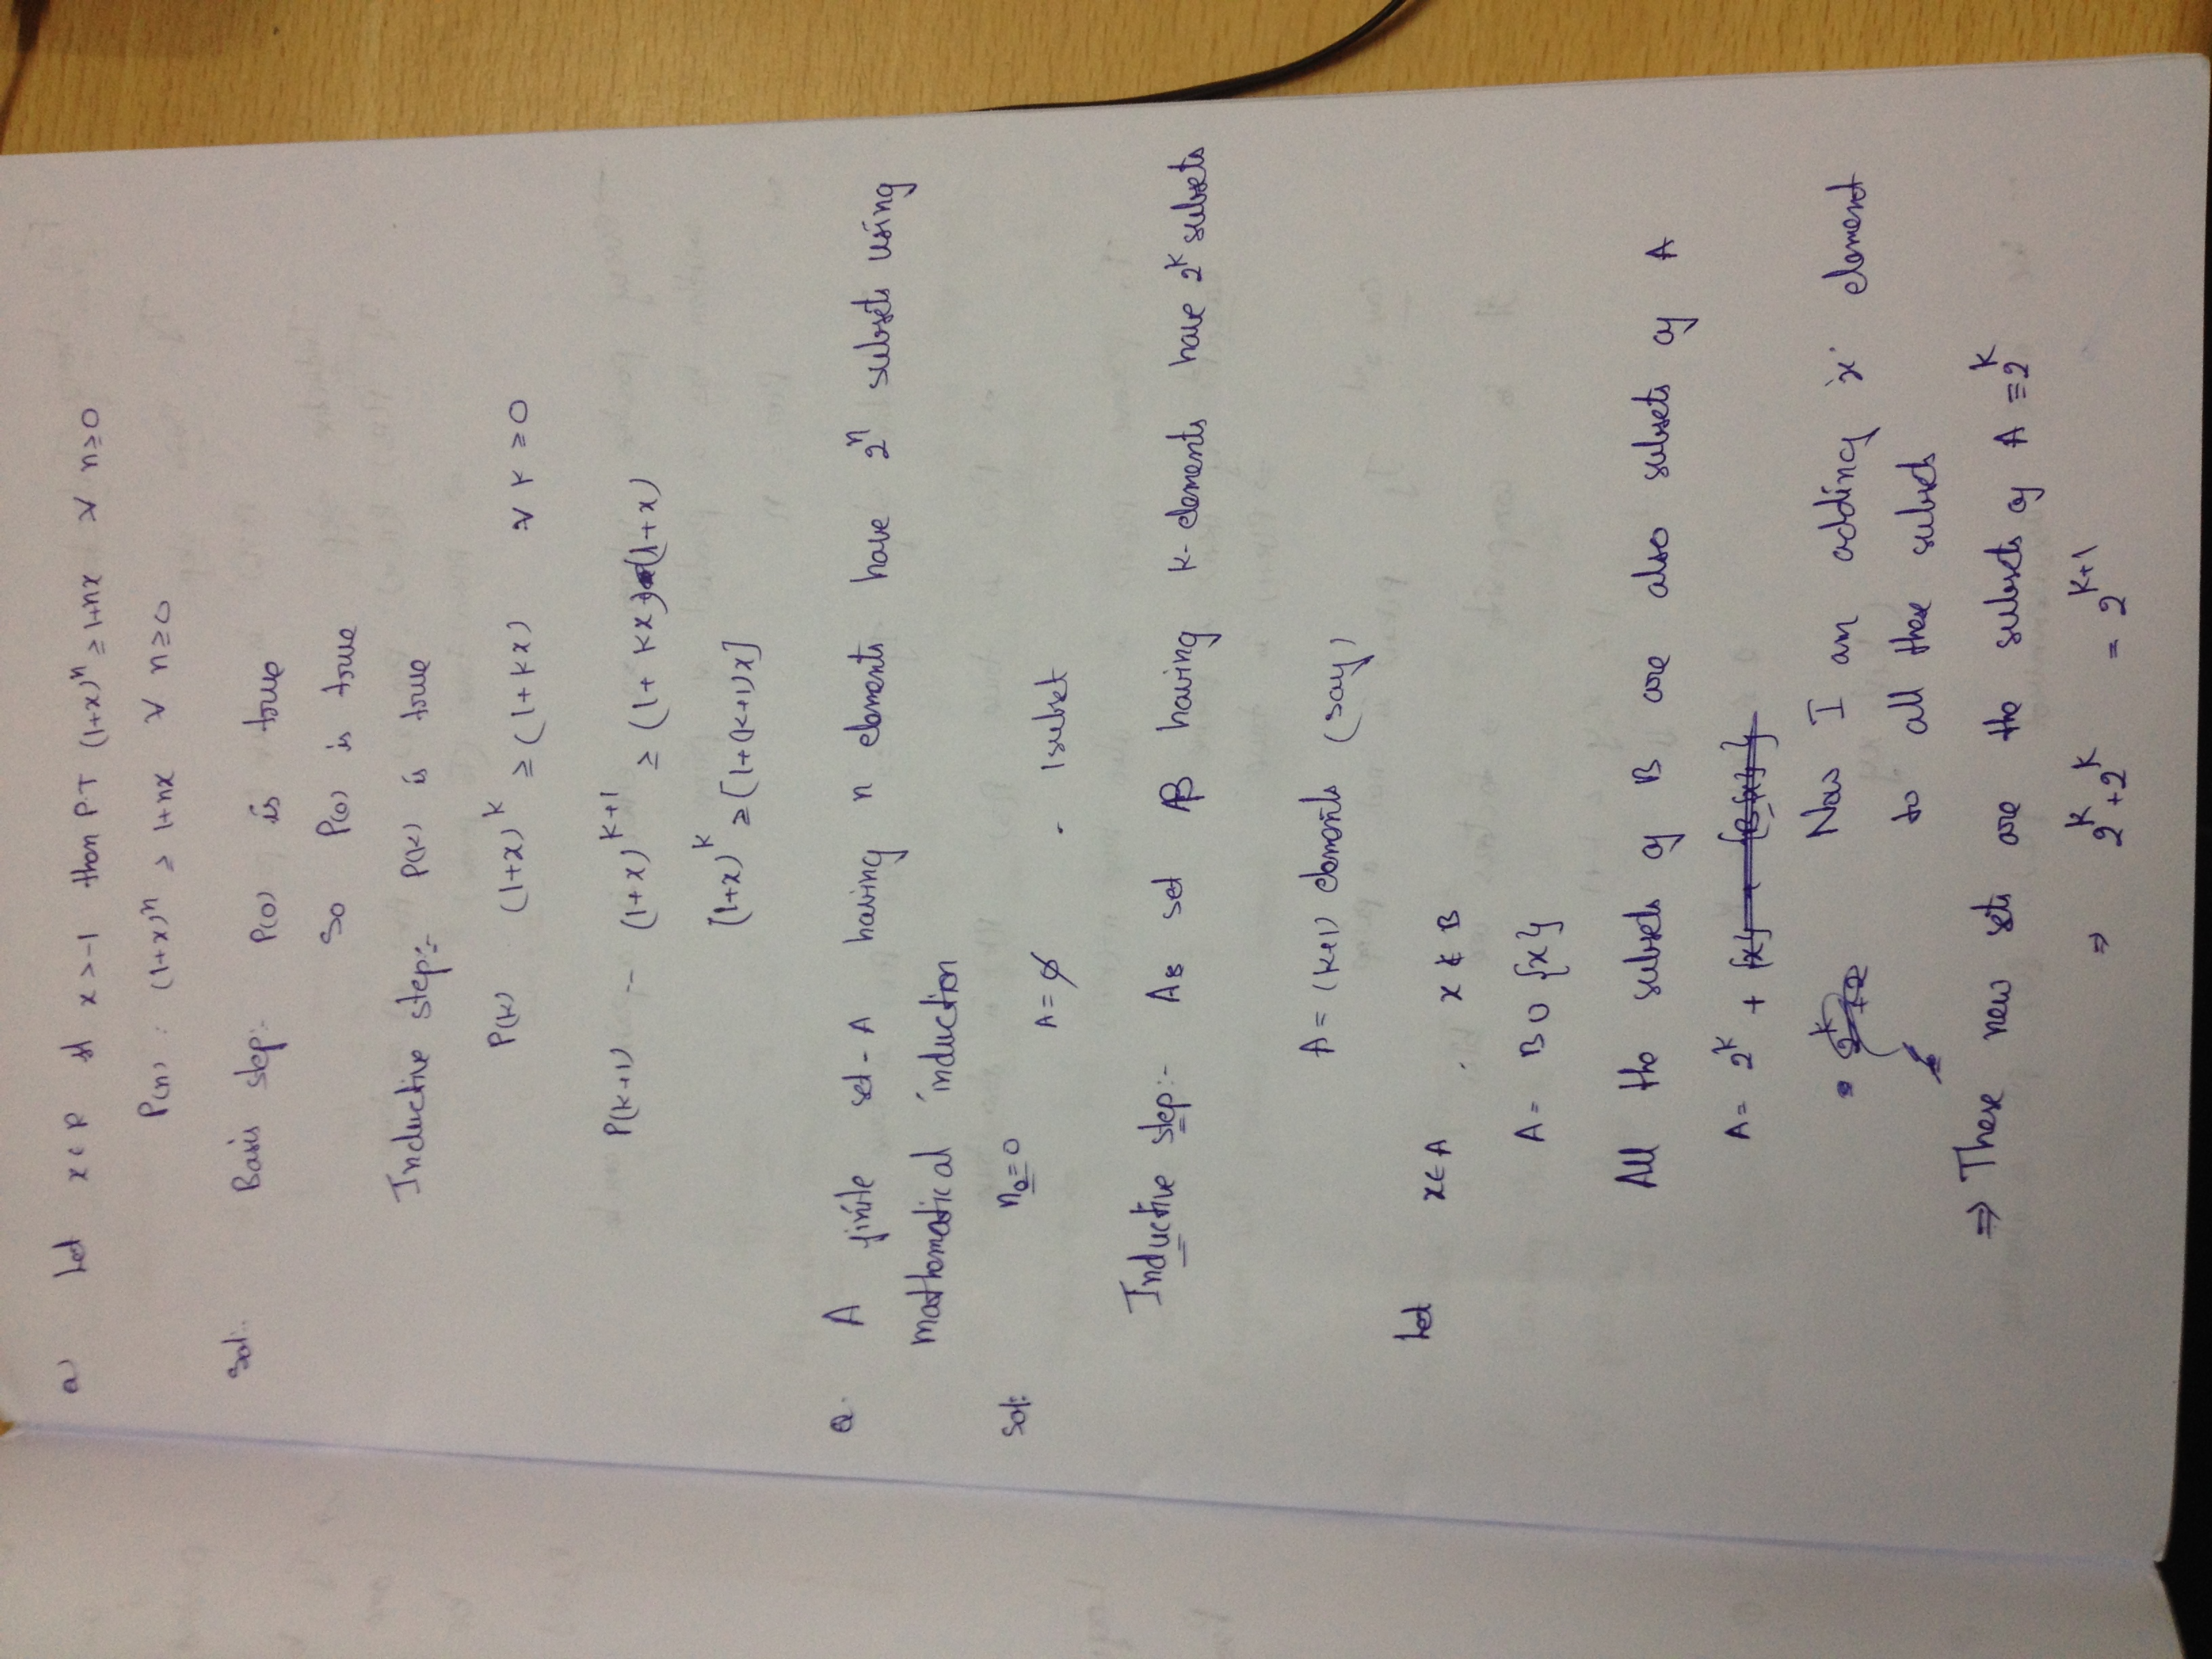 Q) Let x ∈ R & x > -1 then PT (1+x)^n ≥ 1+nx ∀ n≥0
P(n) : (1+x)^n ≥ 1+nx ∀ n≥0
Sol:. Basis step:- P(0) is true
So P(0) is true
Inductive step:- P(k) is true
P(k) (1+x)^k ≥ (1+kx) ∀ k ≥ 0
P(k+1) - (1+x)^{k+1} ≥ (1+kx)(1+x)
(1+x)^k ≥ [1+(k+1)x]
Q. A finite set-A having n elements have 2^n subsets using
mathematical induction
Sol: n_0=0
A = ∅ - 1 subset
Inductive step:- As set B having k-elements have 2^k subsets
A = (k+1) elements (say)
Let x∈A x ∉ B
A = B ∪ {x}
All the subsets of B are also subsets of A
A = 2^k + {x}
Now I am adding 'x' element
to all these subsets
⇒ These new sets are the subsets of A = 2^k
⇒ 2^k+2^k = 2^{k+1}